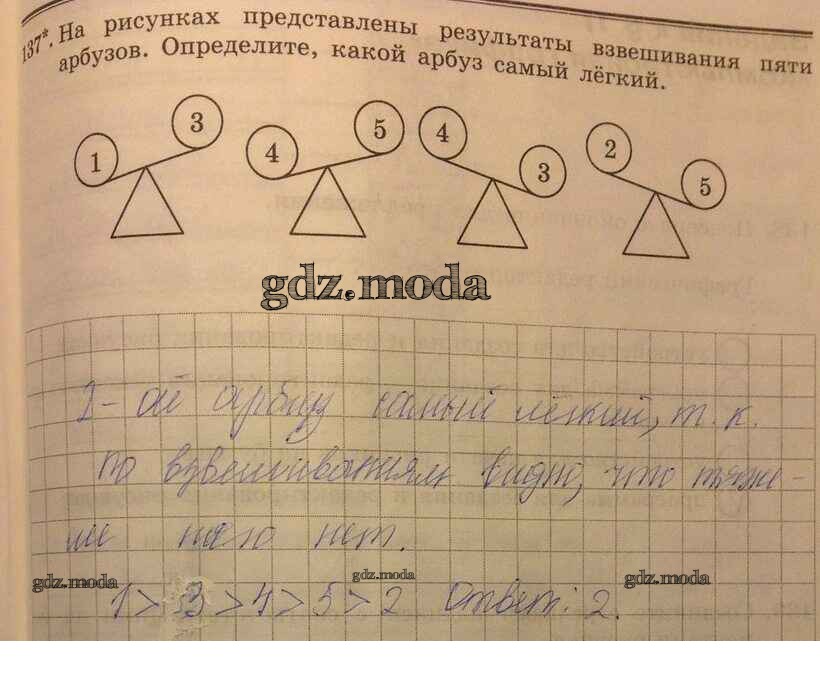 137*. На рисунках представлены результаты взвешивания пяти
арбузов. Определите, какой арбуз самый лёгкий.
1 3 4 5 4 3 2 5
gdz.moda
2-ой арбуз самый лёгкий, т. к.
по взвешиваниям видно, что тяже-
ле него нет.
gdz.moda gdz.moda gdz.moda
1 > 3 > 4 > 5 > 2 Ответ: 2.